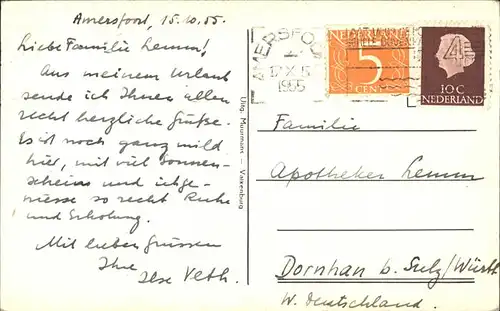 Amersfoort, 15.10.55.
Liebe Familie Lemm!
Aus meinem Urlaub
sende ich Ihnen allen
recht herzliche Grüße.
Es ist noch ganz mild
hier, mit viel Sonnen-
scheins und ich ge-
niesse so recht Ruhe
und Erholung.
Mit lieben Grüssen
Ihre
Ilse Veth.
Uitg. Muurmans – Vaesenburg
AMERSFOORT
17.X.5
1955
4
NEDERLAND
5
CENT
10 C
NEDERLAND
Familie
Apotheker Lemm
Dornhan b. Sulz/Württ
W. Deutschland.